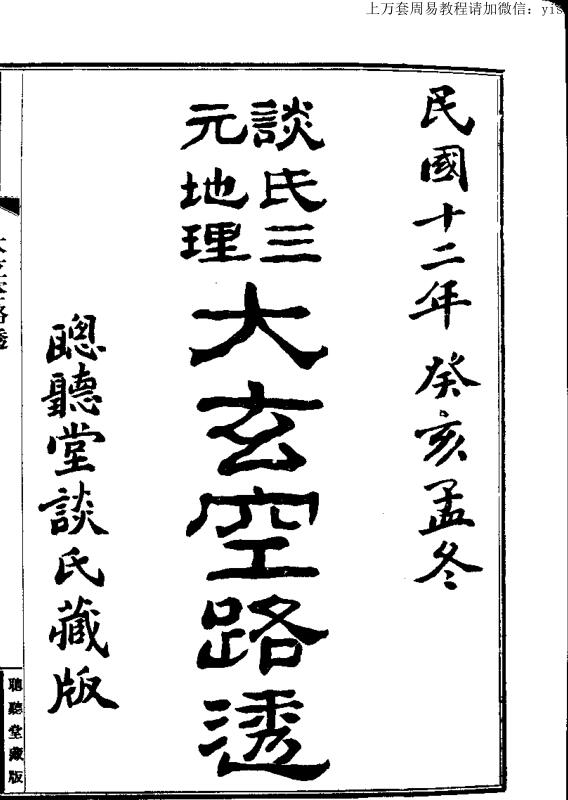 上万套周易教程请加微信：yis
民國十二年癸亥孟冬
談氏三
元地理
大玄空路透
聰聽堂談氏藏版
大玄空路透
聰聽堂藏版